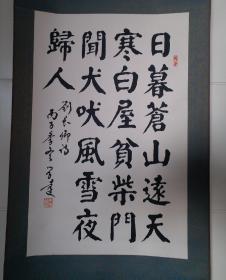 日暮蒼山遠天
寒白屋貧柴門
聞犬吠風雪夜
歸人
劉長卿詩
丙子季冬